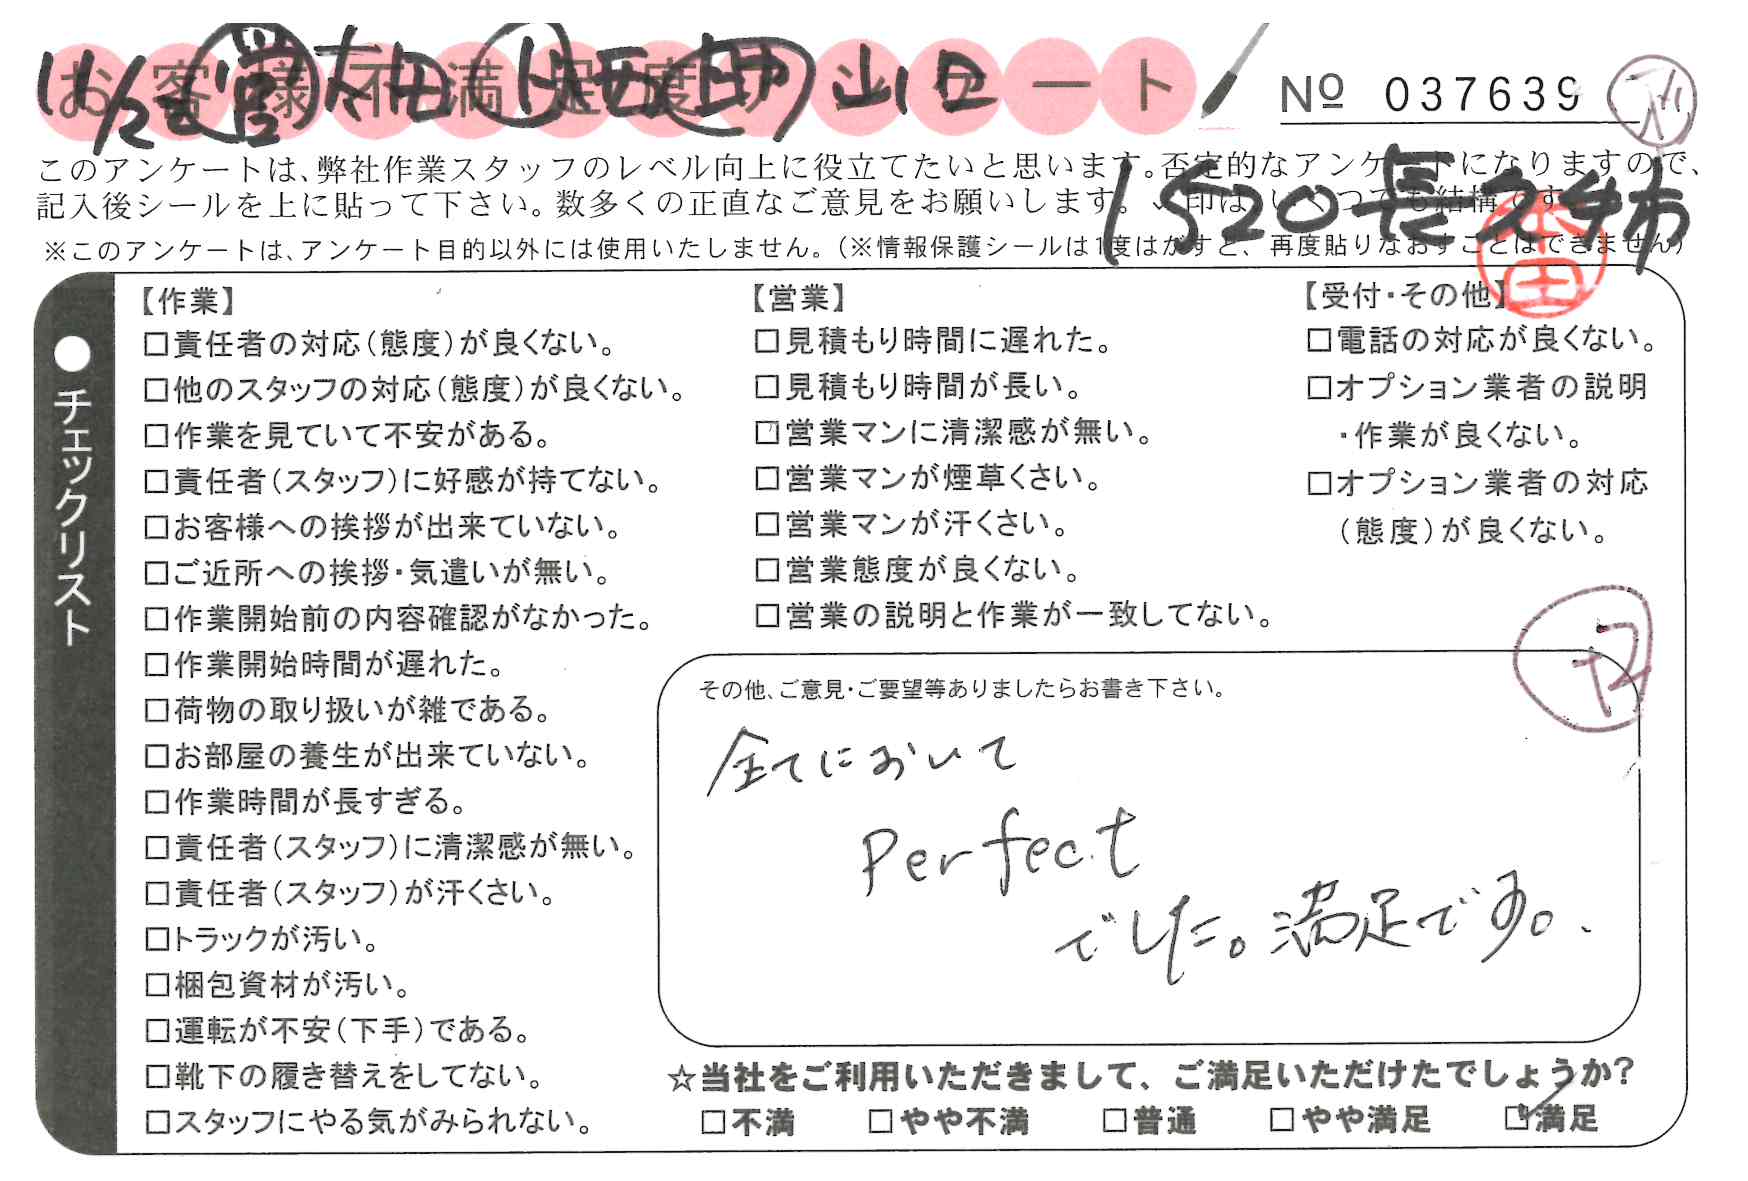 お客様不満足度アンケート
11/26 営 太田 ト 西 助 山口
No 037639
このアンケートは、弊社作業スタッフのレベル向上に役立てたいと思います。否定的なアンケートになりますので、
記入後シールを上に貼って下さい。数多くの正直なご意見をお願いします。✓印は、いくつでも結構です。
1520 長久手市
※このアンケートは、アンケート目的以外には使用いたしません。(※情報保護シールは1度はがすと、再度貼りなおすことはできません)
本田
●チェックリスト
【作業】
□責任者の対応(態度)が良くない。
□他のスタッフの対応(態度)が良くない。
□作業を見ていて不安がある。
□責任者(スタッフ)に好感が持てない。
□お客様への挨拶が出来ていない。
□ご近所への挨拶・気遣いが無い。
□作業開始前の内容確認がなかった。
□作業開始時間が遅れた。
□荷物の取り扱いが雑である。
□お部屋の養生が出来ていない。
□作業時間が長すぎる。
□責任者(スタッフ)に清潔感が無い。
□責任者(スタッフ)が汗くさい。
□トラックが汚い。
□梱包資材が汚い。
□運転が不安(下手)である。
□靴下の履き替えをしてない。
□スタッフにやる気がみられない。
【営業】
□見積もり時間に遅れた。
□見積もり時間が長い。
□営業マンに清潔感が無い。
□営業マンが煙草くさい。
□営業マンが汗くさい。
□営業態度が良くない。
□営業の説明と作業が一致してない。
【受付・その他】
□電話の対応が良くない。
□オプション業者の説明
・作業が良くない。
□オプション業者の対応
(態度)が良くない。
その他、ご意見・ご要望等ありましたらお書き下さい。
全てにおいて
Perfect
でした。満足です。
☆当社をご利用いただきまして、ご満足いただけたでしょうか?
□不満 □やや不満 □普通 □やや満足 ☑満足